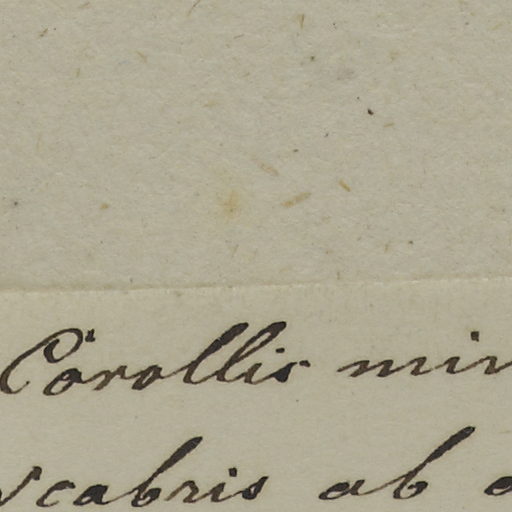 Corollis min
scabris ab